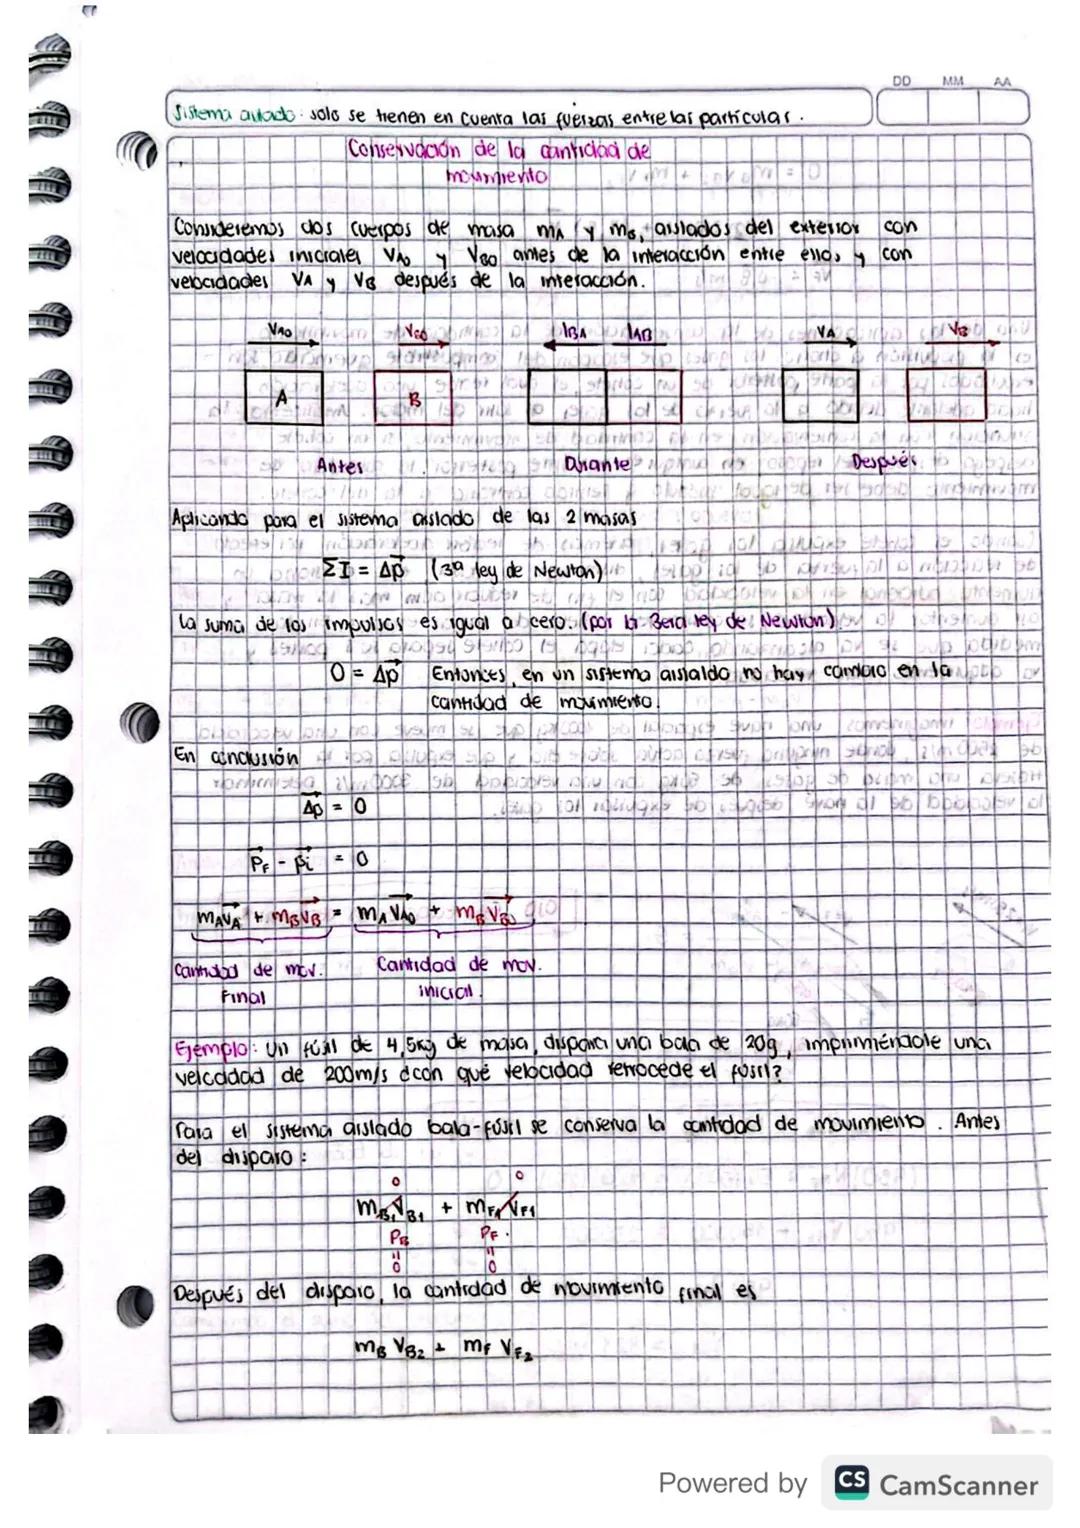 DD MM AA
Sistema aislado: solo se tienen en cuenta las fuerzas entre las partículas.
Conservación de la cantidad de
movimiento
Consideremos dos cuerpos de masa mA y mB, aislados del exterior con
velocidades iniciales VAO y VBO antes de la interacción entre ellos, y con
velocidades VA y VB después de la interacción.
VAO VBO IBA IAB VA VB
A B
Antes Durante Después
Aplicando para el sistema aislado de las 2 masas
ΣI = Δp (3ª ley de Newton)
La suma de los impulsos es igual a cero (por la 3era ley de Newton)
0 = Δp Entonces, en un sistema aislaldo no hay cambio en la
cantidad de movimiento.
En conclusión
Δp = 0
PF - Pi = 0
mAVA + mBVB = mA VAO + mB VBO
Cantidad de mov. Cantidad de mov.
Final inicial.
Ejemplo: Un fúsil de 4,5kg de masa, dispara una bala de 20g, imprimiéndole una
velocidad de 200m/s ¿con qué velocidad retrocede el fúsil?
Para el sistema aislado bala-fúsil se conserva la cantidad de movimiento. Antes
del disparo:
0 0
mB1 VB1 + mF1 VF1
PB PF.
= =
0 0
Después del disparo, la cantidad de movimiento final es
mB VB2 + mF VF2
Powered by CS CamScanner